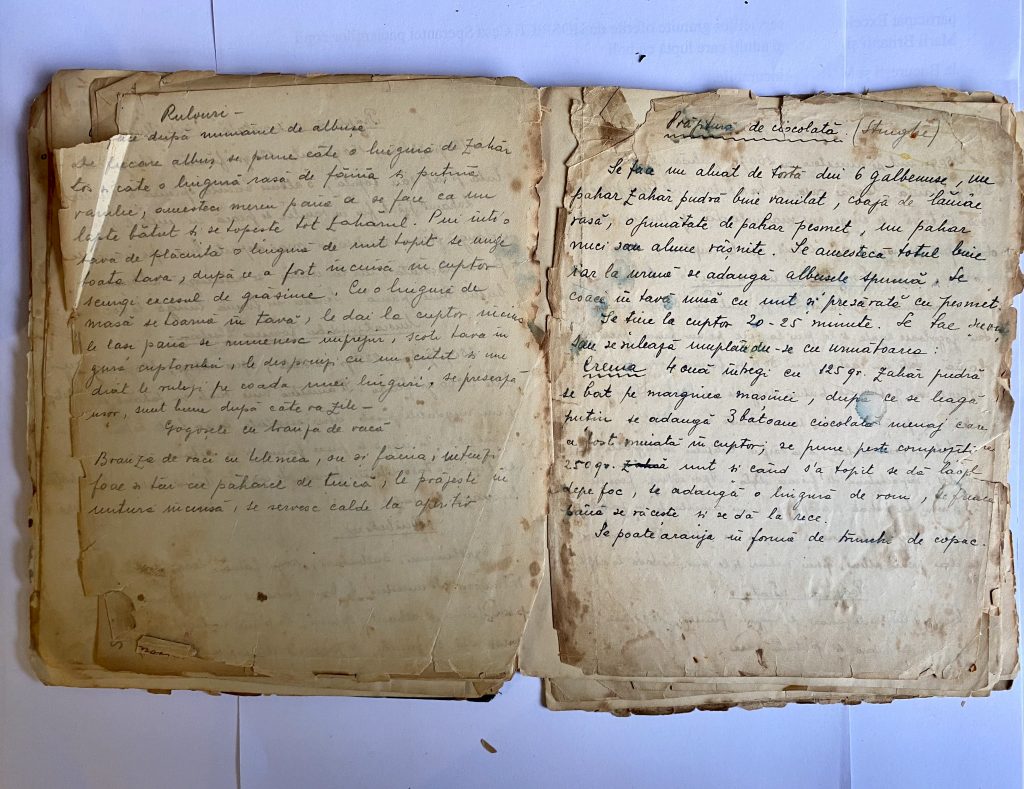 Rulouri -
după numărul de albușe
De fiecare albuș se pune câte o lingură de zahăr
tos și câte o lingură rasă de făină și puțină
vanilie, amesteci mereu până a se face ca un
lapte bătut și se topește tot zahărul. Pui într-o
tavă de plăcintă o lingură de unt topit se unge
toată tava, după ce a fost încinsă în cuptor
scurgi excesul de grăsime. Cu o lingură de
masă se toarnă în tavă, le dai la cuptor
le lași până se rumenesc împrejur, scoți tava în
gura cuptorului, le desprinzi cu un cuțit și
le rulezi pe coada unei linguri, se presează
ușor, sunt bune după câteva zile -
Gogoșele cu brânză de vacă
Branza de vaci cu telemea, ou și făină, întinzi
foae și tai cu păharel de țuică, le prăjești în
untură încinsă, se servesc calde la aperitiv
Prăjitură de ciocolată. (Stinghe)
Se face un aluat de tortă din 6 gălbenușe, un
pahar zahăr pudră bine vanilat, coajă de lămâe
rasă, o jumătate de pahar pesmet, un pahar
nuci sau alune râșnite. Se amestecă totul bine
iar la urmă se adaugă albușele spumă. Se
coace în tavă unsă cu unt și presărată cu pesmet
Se ține la cuptor 20-25 minute. Se fac
sau se rulează umplându-se cu următoarea:
Crema 4 ouă întregi cu 125 gr. zahăr pudră
se bat pe marginea mașinei, după ce se leagă
puțin se adaugă 3 bătoane ciocolată menaj care
a fost muiată în cuptor; se pune peste compoziți
250 gr. zahăr unt și când s'a topit se dă
depe foc, se adaugă o lingură de rom,
până se răcește și se dă la rece.
Se poate aranja în formă de trunchi de copac.